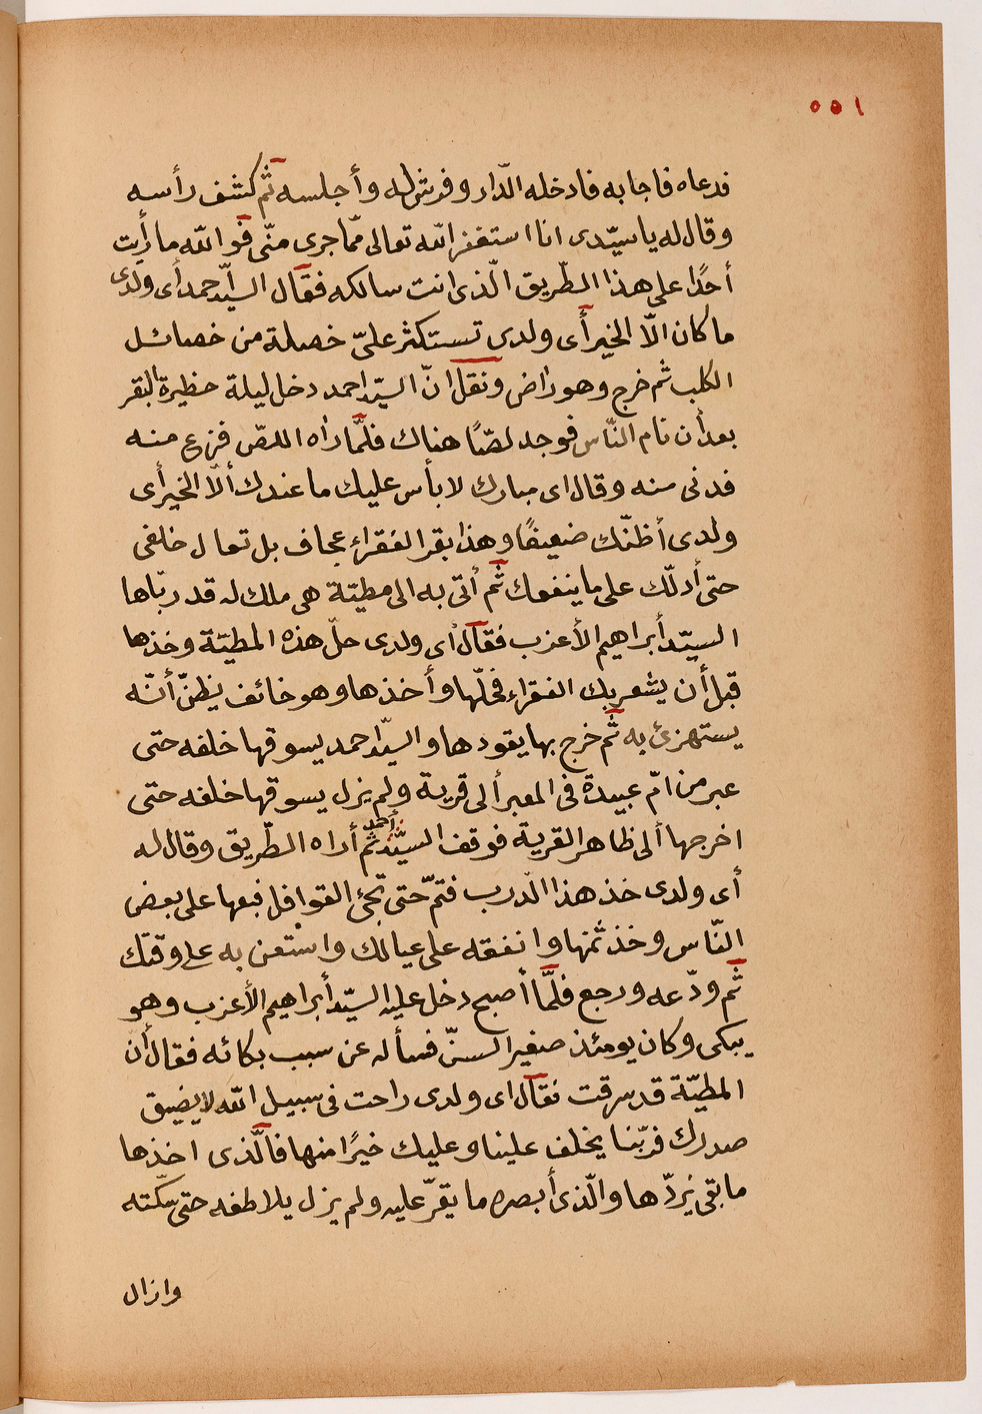 ٥٥١
فدعاه فاجابه فادخله الدّار وفرش له وأجلسه ثم كشف رأسه
وقال له يا سيّدى انا استغفر الله تعالى ممّا جرى منّى فوالله ما رأيت
أحدًا على هذا الطّريق الّذى انت سالكه فقال السيّد احمد أى ولدى
ما كان الّا الخير أى ولدى تستكثر علىّ خصلة من خصائل
الكلب ثم خرج وهو راض ونقل انّ السيّد احمد دخل ليلة حظيرة البقر
بعد أن نام النّاس فوجد لصّا هناك فلمّا راه اللصّ فزع منه
فدنى منه وقال اى مبارك لا بأس عليك ما عندك ألّا الخير أى
ولدى أظنّك ضعيفًا وهذا بقر الفقراء عجاف بل تعال خلفى
حتى أدلّك على ما ينفعك ثم أتى به الى مطيّة هى ملك له قد ربّاها
السيّد أبراهيم الأعزب فقال اى ولدى حلّ هذه المطيّة وخذها
قبل أن يشعر بك الفقراء فحلّها وأخذها وهو خائف يظنّ أنّه
يستهزئ به ثم خرج بها يقودها والسيّد احمد يسوقها خلفه حتى
عبر من امّ عبيدة فى المعبر ألى قرية ولم يزل يسوقها خلفه حتى
اخرجها ألى ظاهر القرية فوقف السيّد احمد ثم أراه الطّريق وقال له
أى ولدى خذ هذا الدّرب فتمّ حتى تجئ القوافل فبعها على بعض
النّاس وخذ ثمنها وانفقه على عيالك واستعن به على وقتك
ثم ودّعه ورجع فلمّا أصبح دخل عليه السيّد أبراهيم الأعزب وهو
يبكى وكان يومئذ صغير السنّ فسأله عن سبب بكائه فقال أن
المطيّة قد سرقت فقال اى ولدى راحت فى سبيل الله لا يضيق
صدرك فربّنا يخلف علينا وعليك خيرًا منها فالّذى اخذها
ما بقى يردّها والّذى أبصره ما يقرّ عليه ولم يزل يلاطفه حتى سكّته
وازال